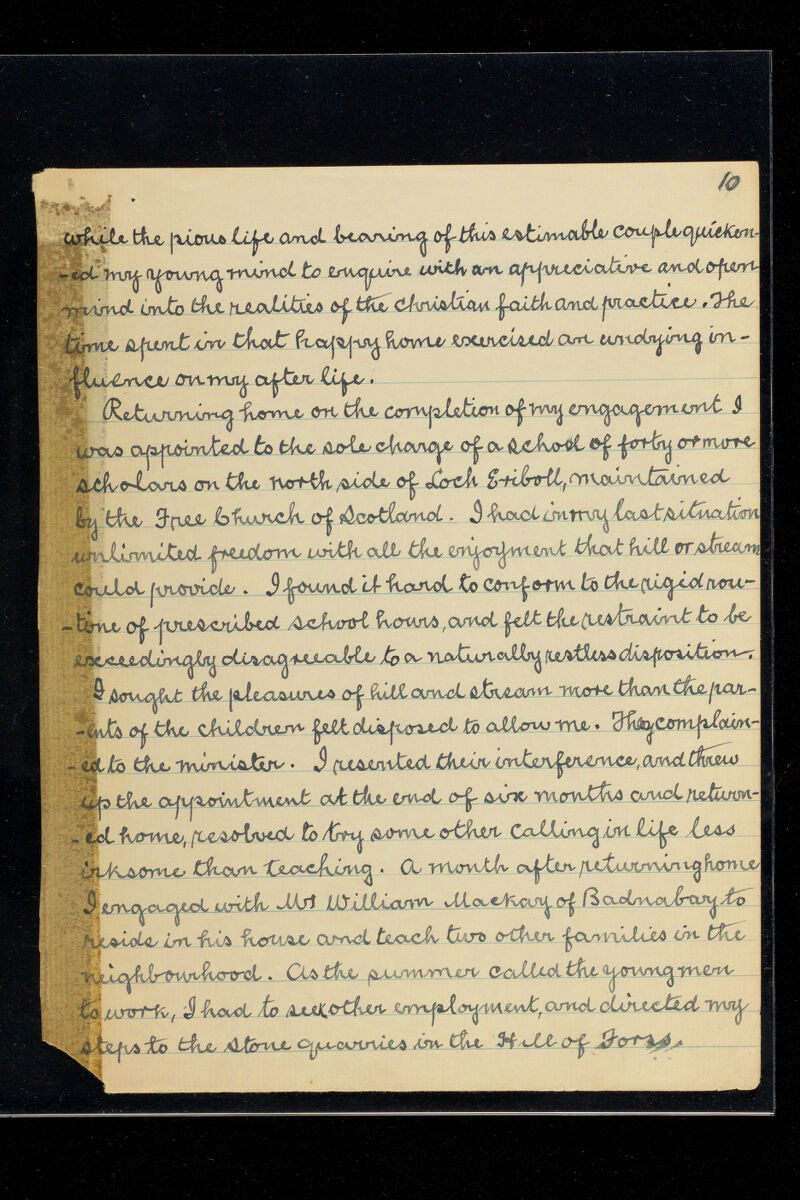 10
while the pious life and bearing of this estimable couple quicken-
-ed my young mind to enquire with an appreciative and open
mind into the realities of the Christian faith and practice. The
time spent in that happy home exercised an undying in-
fluence on my after life.
Returning home on the completion of my engagement I
was appointed to the sole charge of a school of forty or more
scholars on the north side of Loch Eriboll, maintained
by the Free Church of Scotland. I had in my last situation
unlimited freedom with all the enjoyment that hill or stream
could provide. I found it hard to conform to the rigid rou-
-tine of prescribed school hours, and felt the restraint to be
exceedingly disagreeable to a naturally restless disposition.
I sought the pleasures of hill and stream more than the par-
-ents of the children felt disposed to allow me. They complain-
-ed to the minister. I resented their interference, and threw
up the appointment at the end of six months and return-
-ed home, resolved to try some other calling in life less
irksome than teaching. A month after returning home
I engaged with Mr William Mackay of Badnabay to
reside in his house and teach two other families in the
neighbourhood. As the summer called the young men
to work, I had to seek other employment, and directed my
steps to the stone quarries in the Hill of Forss.